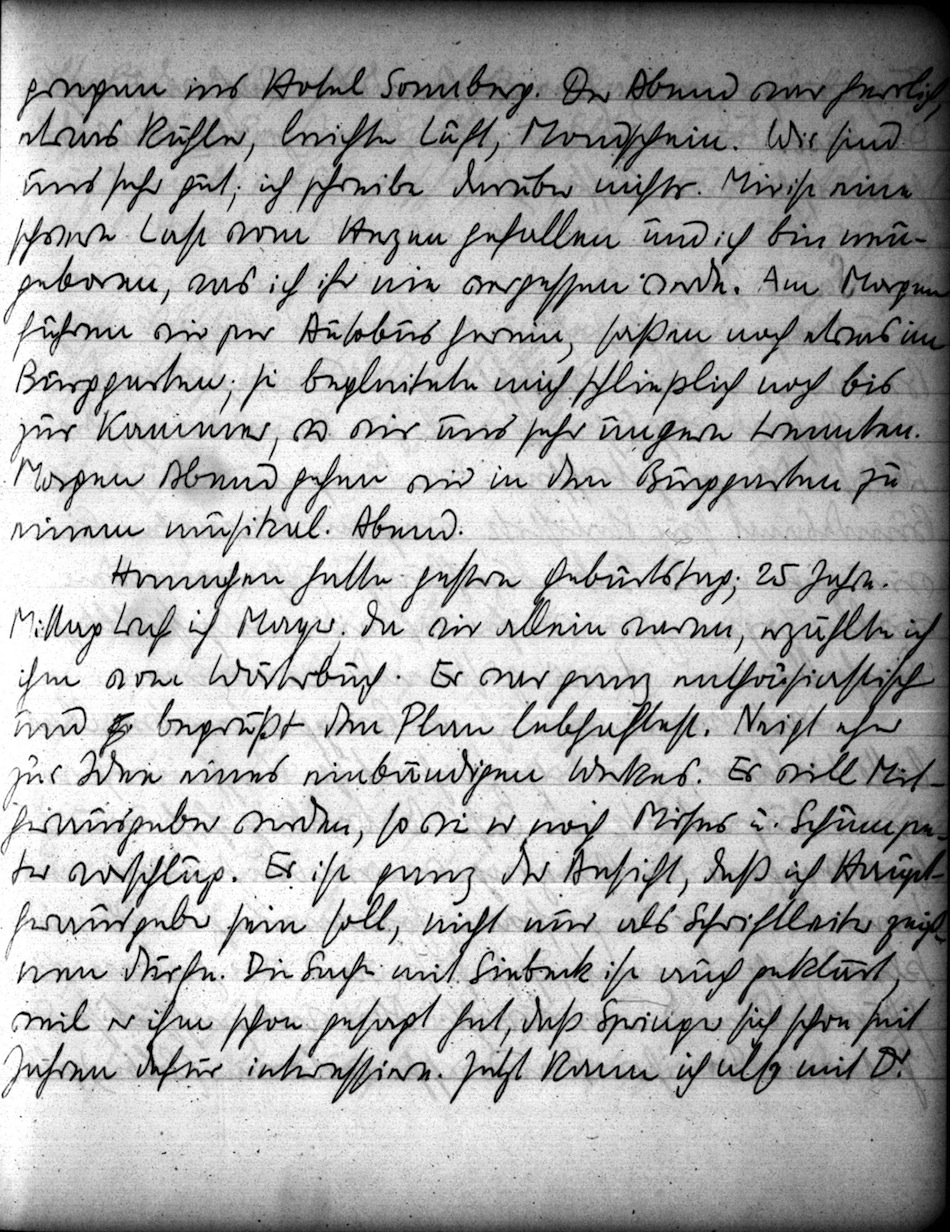 gingen ins Hotel Sonnberg. Der Abend war herrlich,
etwas kühler, leichte Luft, Mondschein. Wir sind
uns sehr gut; ich schreibe darüber nichts. Mir ist eine
schwere Last vom Herzen gefallen und ich bin neu-
geboren, was ich ihr nie vergessen werde. Am Morgen
fuhren wir per Autobus herein, saßen noch etwas im
Burggarten; sie begleitete mich schließlich noch bis
zur Kammer, wo wir uns sehr ungern trennten.
Morgen Abend gehen wir in den Burggarten zu
einem musikal. Abend.
Hannchen hatte gestern Geburtstag; 25 Jahre.
Mittag traf ich Mayer. Da wir allein waren, erzählte ich
ihm vom Wörterbuch. Er war ganz enthousiastisch
und begrüßt den Plan lebhaftest. Neigt eher
zur Idee eines einbändigen Werkes. Er will Mit-
herausgeber werden, so wie er noch Mises u. Schumpe-
ter vorschlug. Er ist ganz der Ansicht, daß ich Haupt-
herausgeber sein soll, nicht nur als Schriftleiter zeich-
nen dürfe. Die Sache mit Siebeck ist auch geklärt,
weil er ihm schon gesagt hat, daß Springer sich schon seit
Jahren dafür interessiere. Jetzt kann ich also mit Dr.